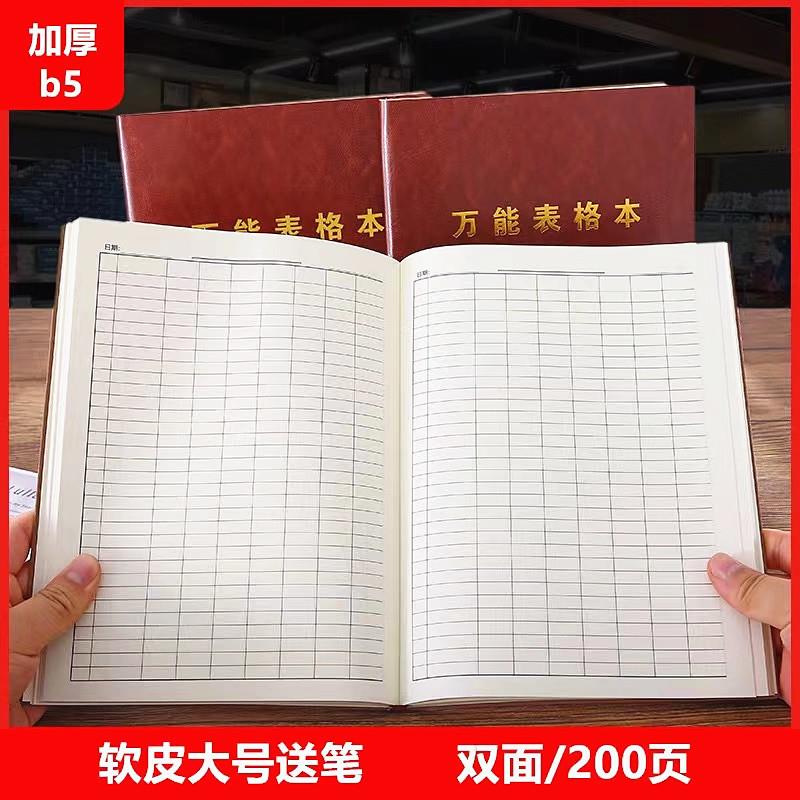 加厚
b5
万能表格本
万能表格本
日期:
日期:
软皮大号送笔 双面/200页